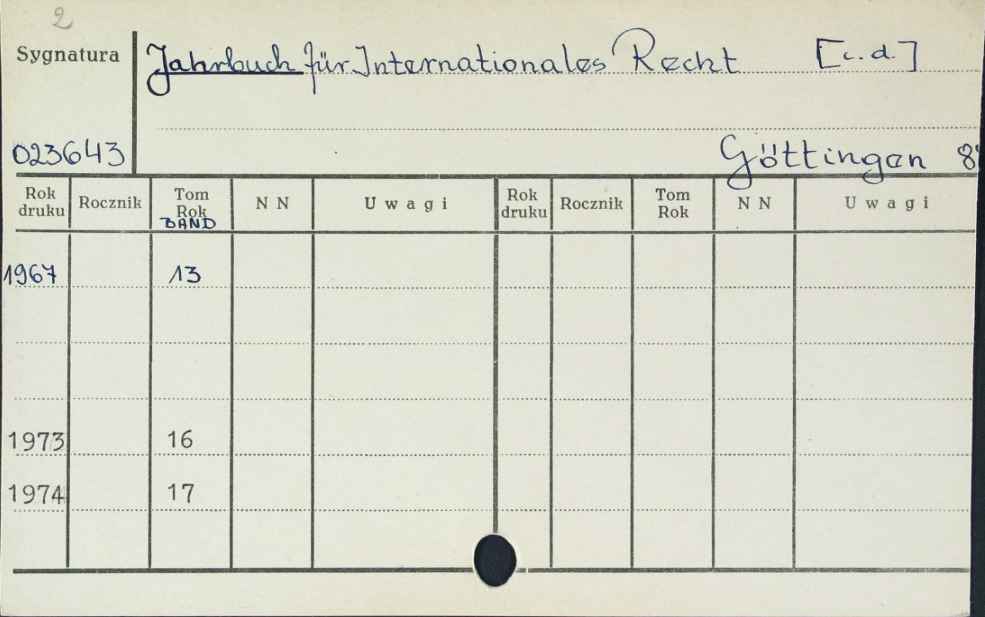 2
Sygnatura
Jahrbuch für Internationales Recht [c.d.]
023643
Göttingen 8°
Rok druku Rocznik Tom Rok BAND NN Uwagi Rok druku Rocznik Tom Rok NN Uwagi
1967 13
1973 16
1974 17